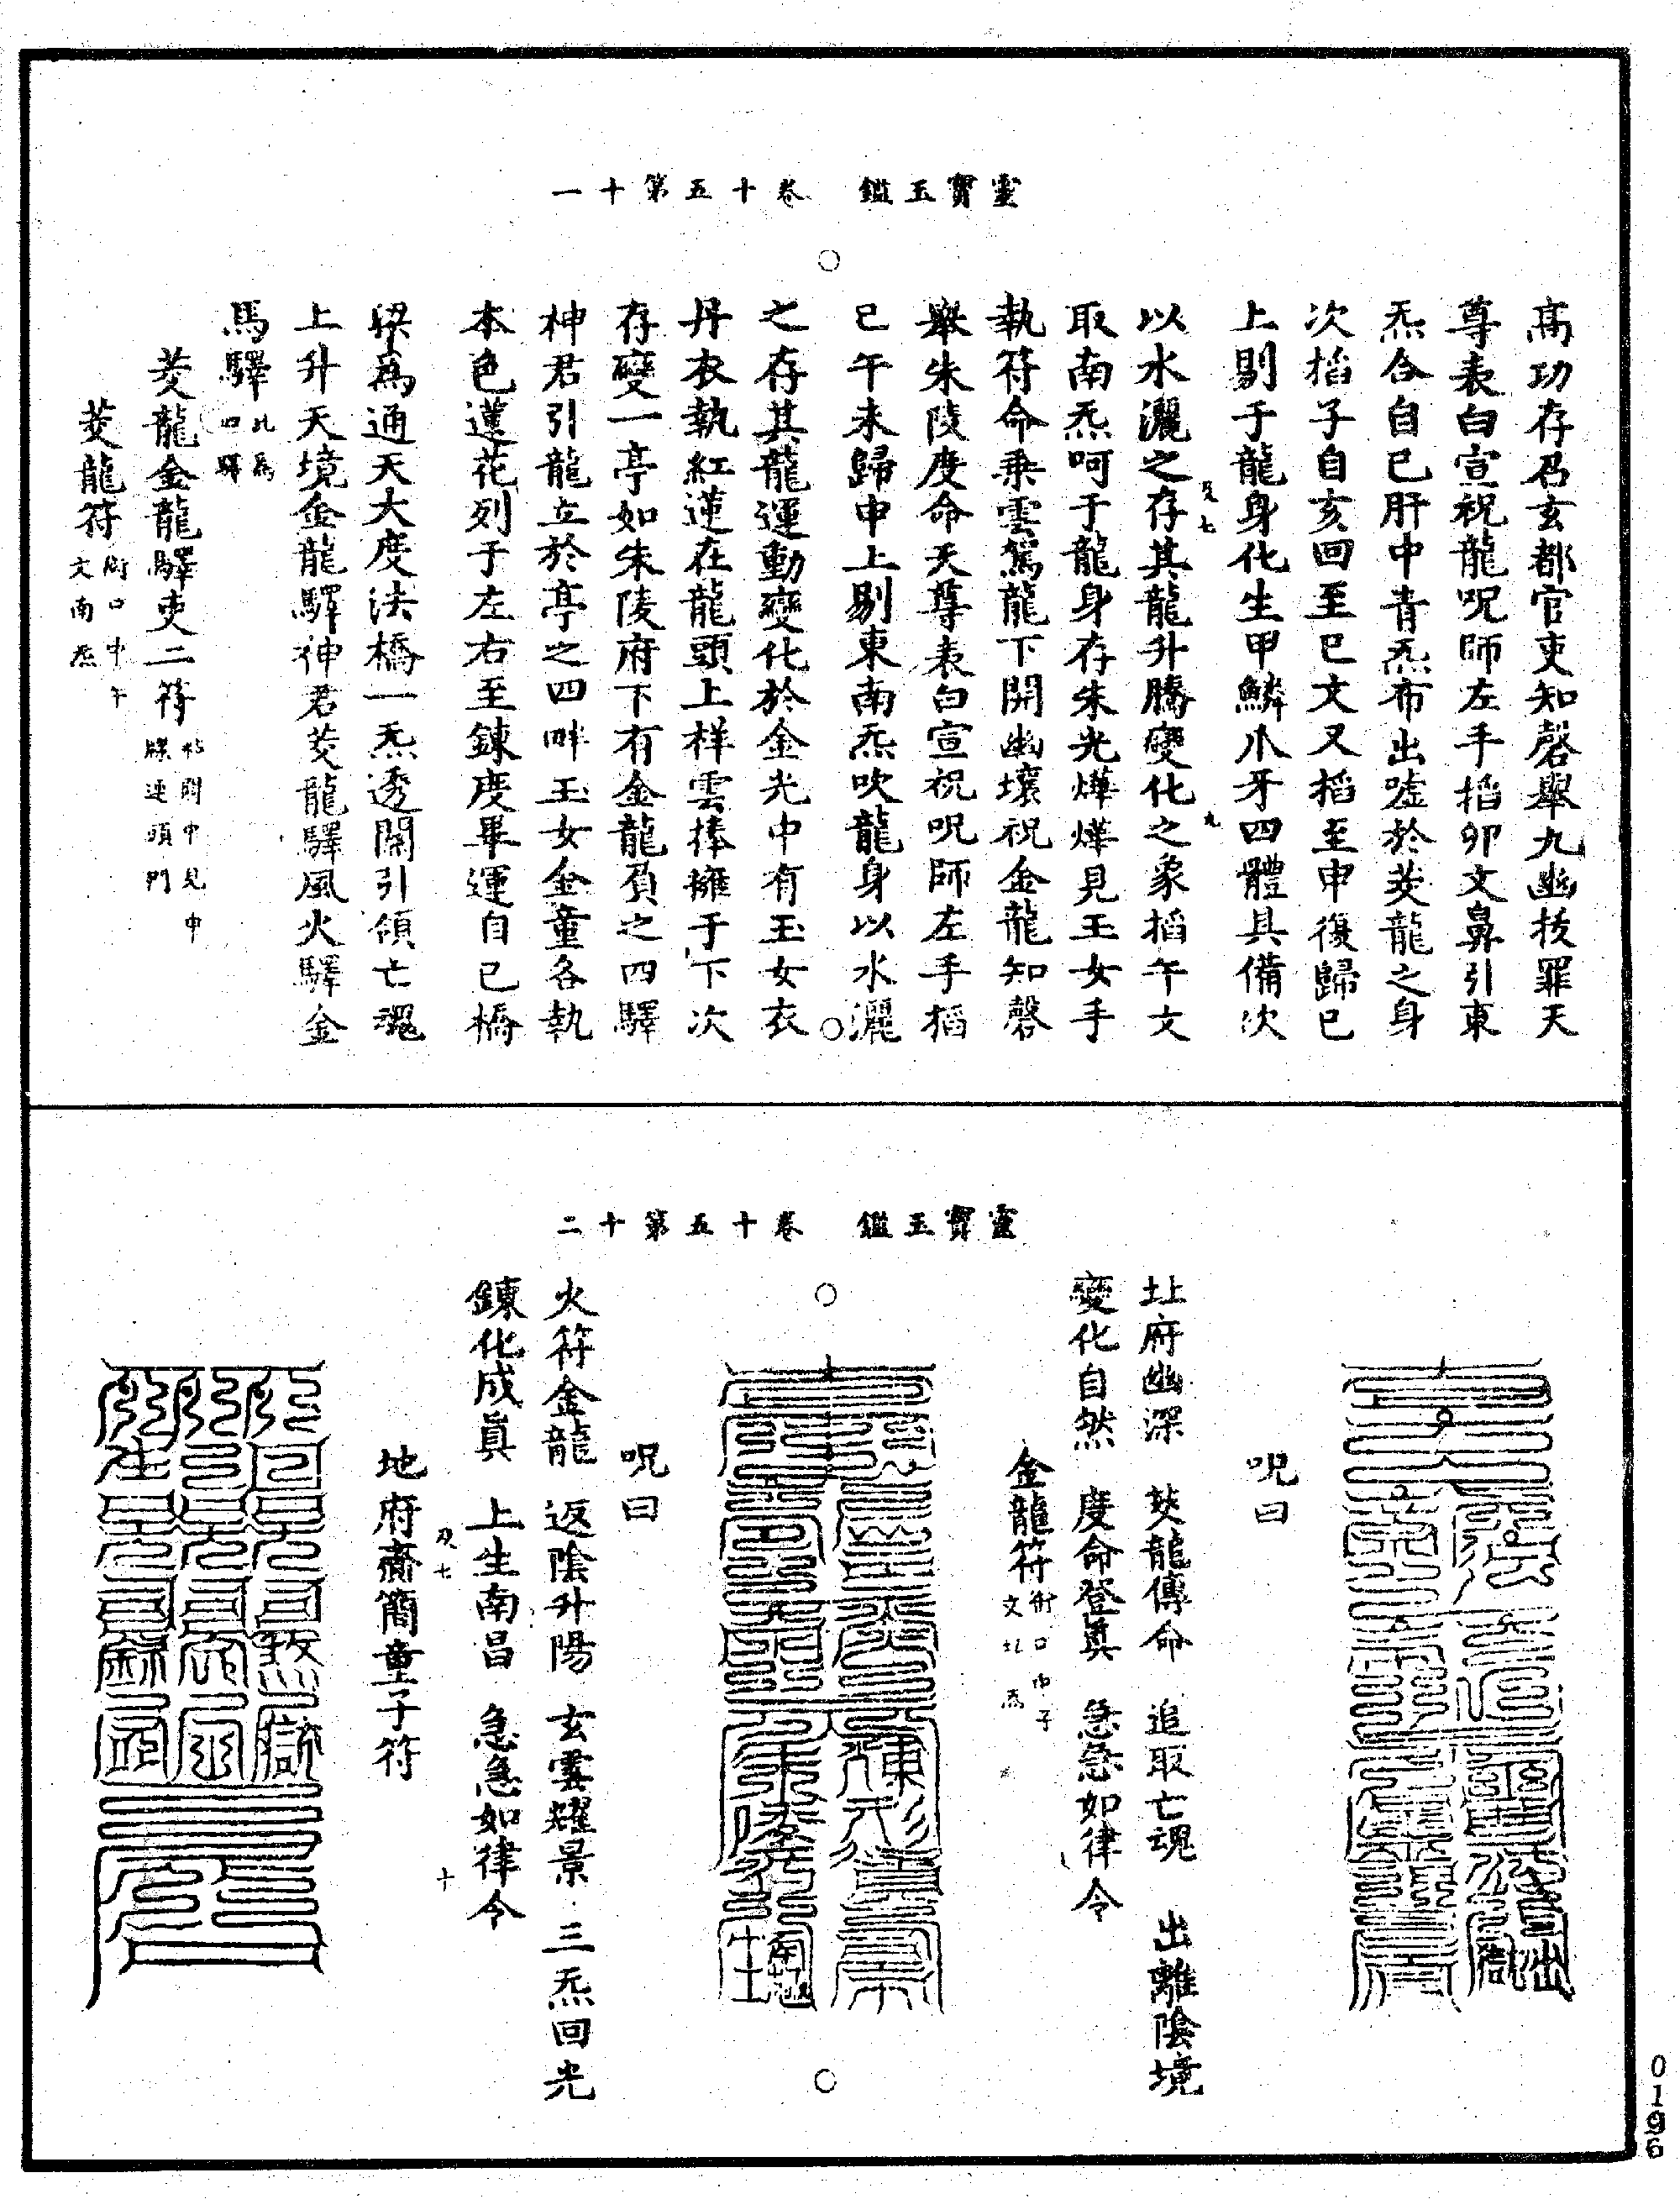 靈寶玉鑑　卷十五第十一
高功存召玄都官吏知磬舉九幽拔罪天
尊表白宣祝龍呪師左手搯卯文鼻引東
炁合自己肝中青炁布出噓於茭龍之身
次搯子自亥回至巳文又搯至申復歸巳
上剔于龍身化生甲鱗爪牙四體具備次
以水灑之存其龍升騰變化之象搯午文
取南炁呵于龍身存朱光燁燁見玉女手
執符命乘雲駕龍下開幽壤祝金龍知磬
舉朱陵度命天尊表白宣祝呪師左手搯
巳午未歸申上剔東南炁吹龍身以水灑
之存其龍運動變化於金光中有玉女衣
丹衣執紅蓮在龍頭上祥雲捧擁于下次
存變一亭如朱陵府下有金龍負之四驛
神君引龍立於亭之四畔玉女金童各執
本色蓮花列于左右至鍊度畢運自己橋
梁爲通天大度法橋一炁透關引領亡魂
上升天境金龍驛神君茭龍驛風火驛金
馬驛此爲四驛
茭龍金龍驛吏二符
茭龍符銜口中午文南炁
靈寶玉鑑　卷十五第十二
呪曰
北府幽深　茭龍傳命　追取亡魂　出離陰境
變化自然　度命登眞　急急如律令
金龍符銜口中子文北炁
呪曰
火符金龍　返陰升陽　玄雲耀景　三炁回光
鍊化成眞　上生南昌　急急如律令
地府齋簡童子符
0196